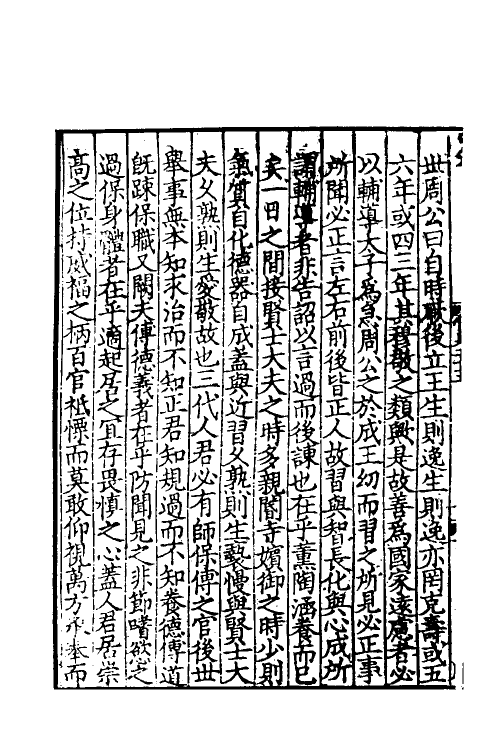 世周公曰自時厥後立王生則逸生則逸亦罔克壽或五
六年或四三年其穆敬之類歟是故善爲國家遠慮者必
以輔導太子爲急周公之於成王幼而習之所見必正事
所聞必正言左右前後皆正人故習與智長化與心成所
謂輔導者非告詔以言過而後諫也在乎薰陶涵養而已
矣一日之間接賢士大夫之時多親閹寺嬪御之時少則
氣質自化德器自成蓋與近習久熟則生褻慢與賢士大
夫久熟則生愛敬故也三代人君必有師保傅之官後世
舉事無本知求治而不知正君知規過而不知養德傅道
旣踈保職又闕夫傅德義者在乎防聞見之非節嗜欲之
過保身體者在乎適起居之宜存畏慎之心蓋人君居崇
高之位持威福之柄百官祗慄而莫敢仰視萬方承奉而